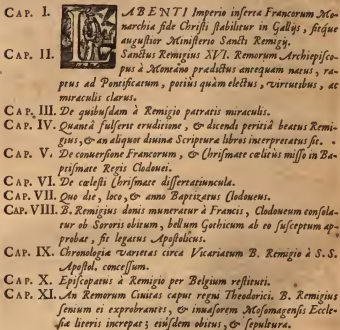 CAP. I. LABENTI Imperio inserta Francorum Mo-
narchia fide Christi stabilitur in Gallijs, fitque
augustior Ministerio Sancti Remigij.
CAP. II. Sanctus Remigius XVI. Remorum Archiepisco-
pus à Montano prædictus antequam natus, ra-
ptus ad Pontificatum, potiùs quàm electus, virtutibus, ac
miraculis clarus.
CAP. III. De quibusdam à Remigio patratis miraculis.
CAP. IV. Quantâ fulserit eruditione, & dicendi peritiâ beatus Remi-
gius, & an aliquot diuinæ Scripturæ libros interpretatus sit.
CAP. V. De conuersione Francorum, & Chrismate cælitùs misso in Ba-
ptismate Regis Clodouei.
CAP. VI. De cælesti Chrismate dissertatiuncula.
CAP. VII. Quo die, loco, & anno Baptizatus Clodoueus.
CAP. VIII. B. Remigius donis muneratur à Francis, Clodoueum consola-
tur ob Sororis obitum, bellum Gothicum ab eo susceptum ap-
probat, fit legatus Apostolicus.
CAP. IX. Chronologiæ varietas circa Vicariatum B. Remigio à S. S.
Apostol. concessum.
CAP. X. Episcopatus à Remigio per Belgium restituti.
CAP. XI. An Remorum Ciuitas caput regni Theodorici. B. Remigius
senium ei exprobrantes, & inuasorem Mosomagensis Eccle-
siæ literis increpat; eiusdem obitus, & sepultura.